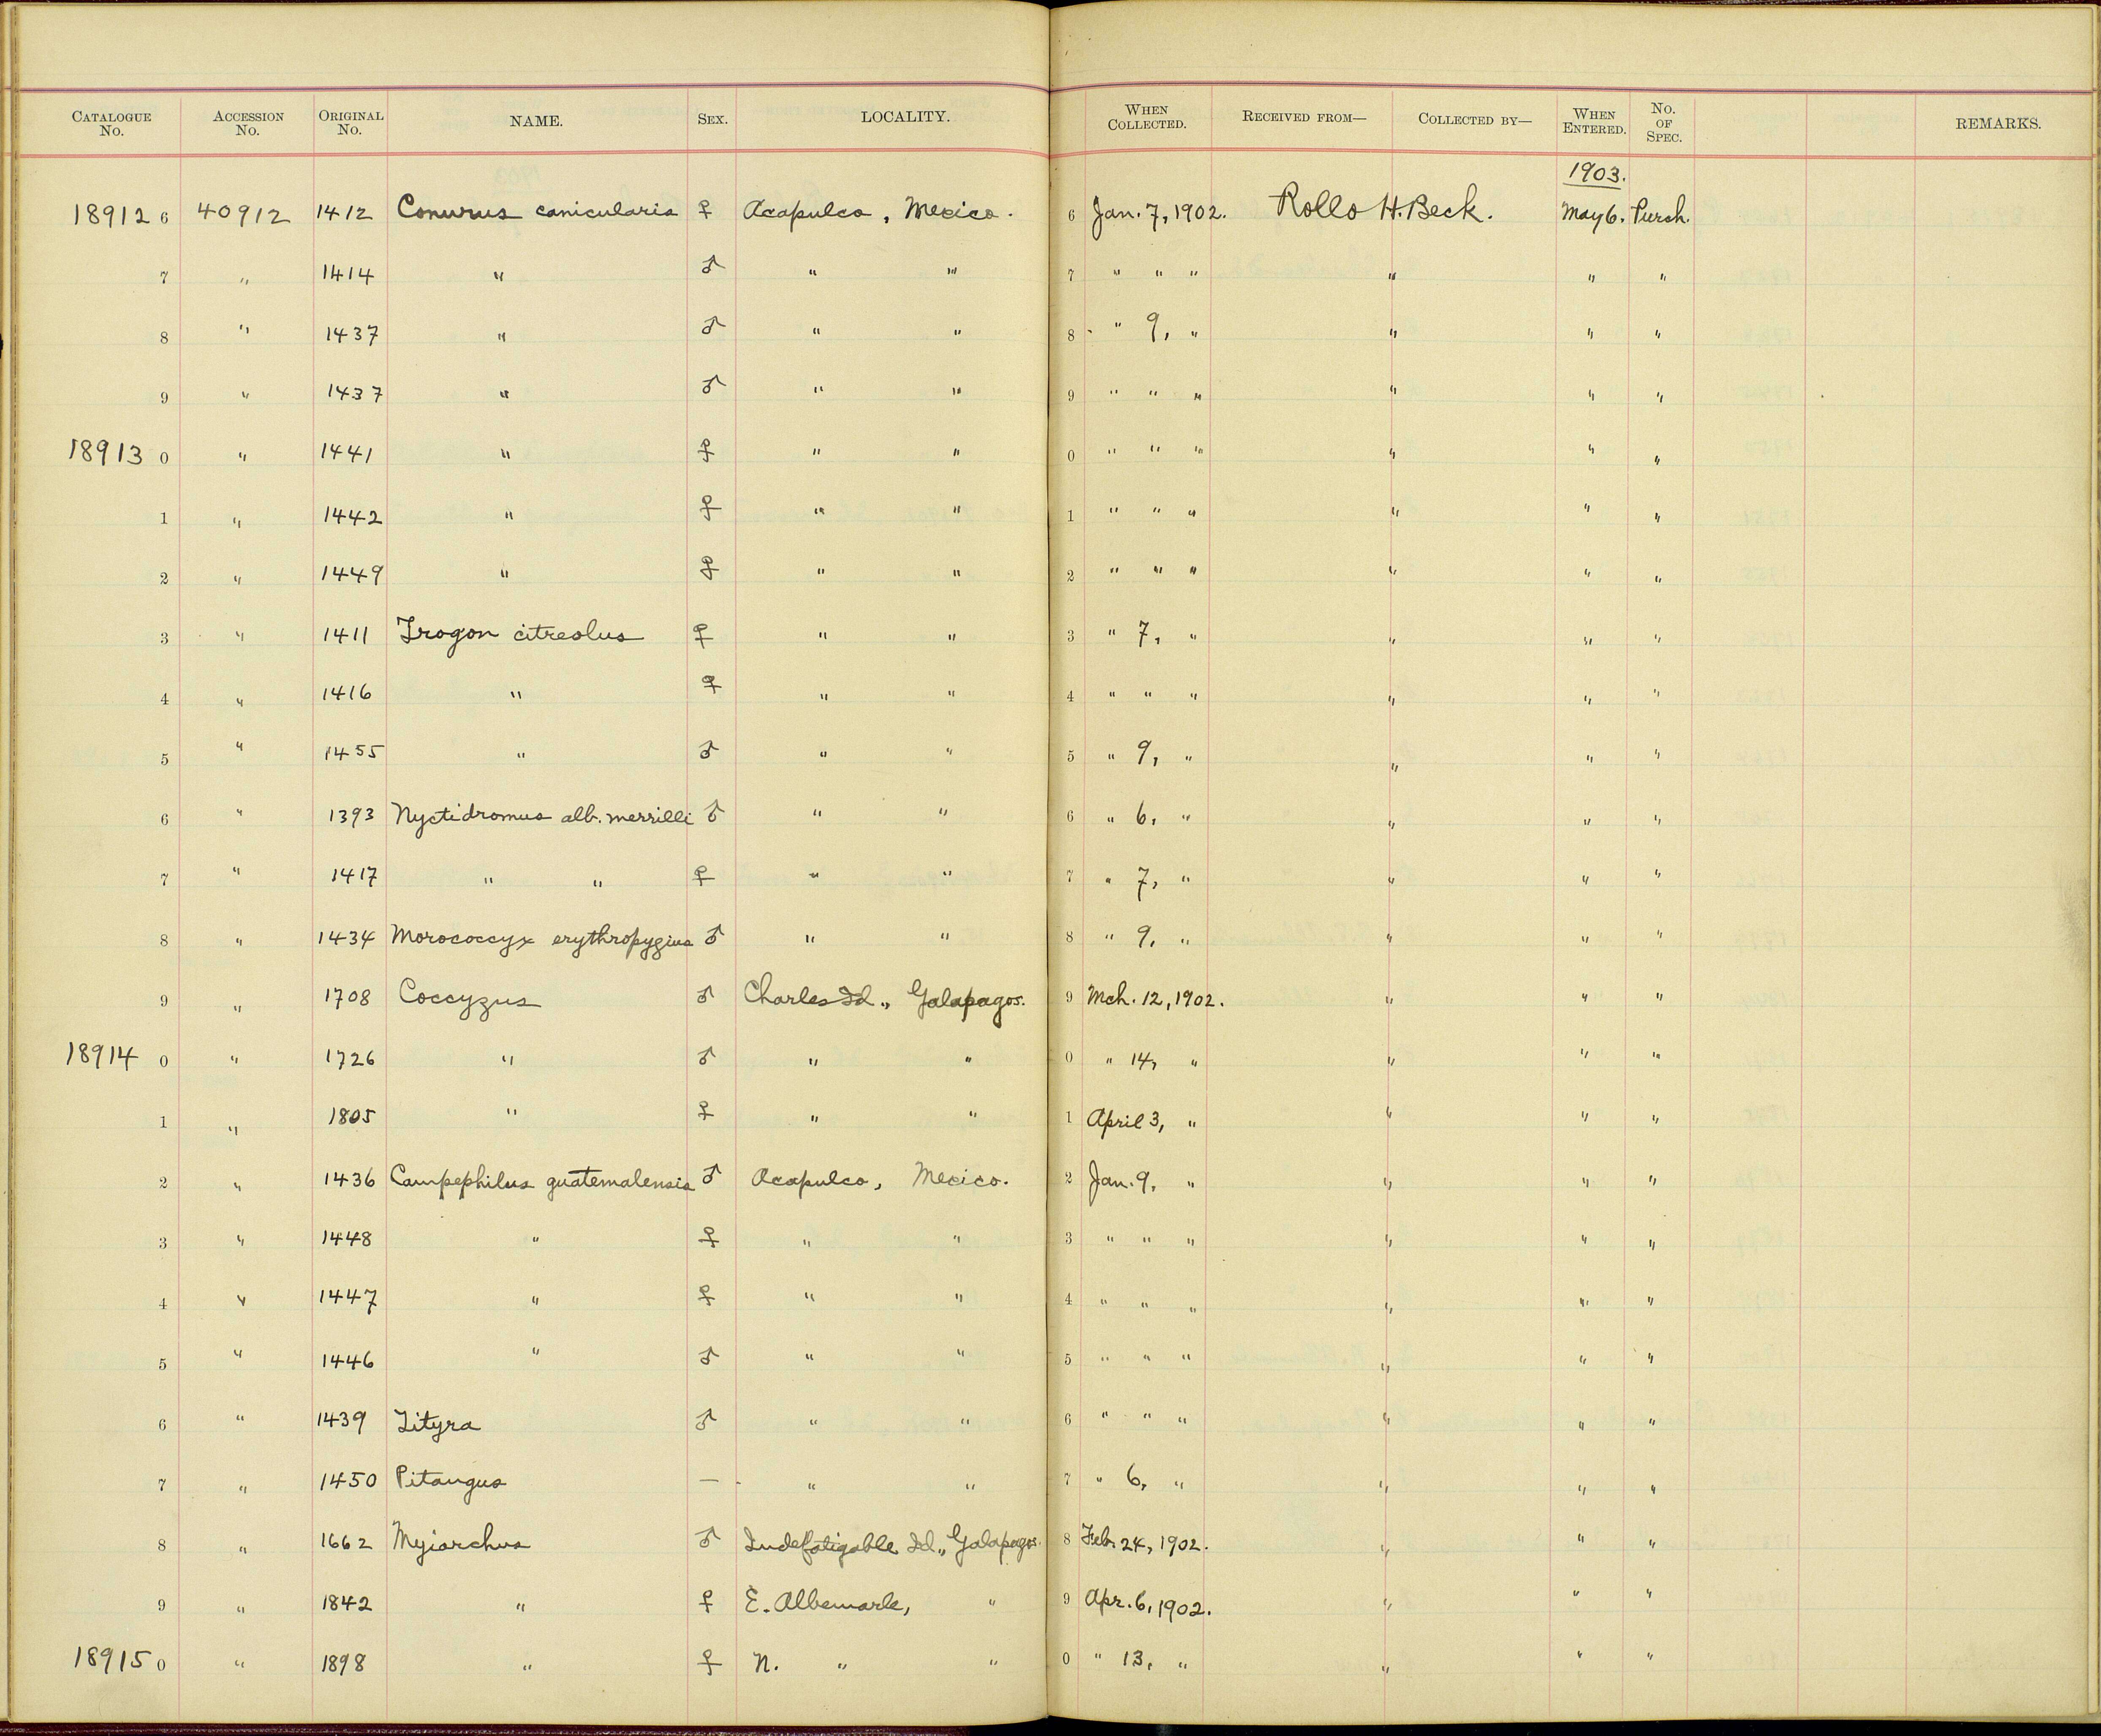 CATALOGUE No. ACCESSION No. ORIGINAL No. NAME. SEX. LOCALITY. WHEN COLLECTED. RECEIVED FROM— COLLECTED BY— WHEN ENTERED. No. OF SPEC. REMARKS.
1903.
18912 6 40912 1412 Conurus canicularis ♀ Acapulco, Mexico. 6 Jan. 7, 1902. Rollo H. Beck. May 6. Purch.
7 " 1414 " ♂ " " 7 " " " " " "
8 " 1437 " ♂ " " 8 " 9, " " " "
9 " 1437 " ♂ " " 9 " " " " " "
18913 0 " 1441 " ♀ " " 0 " " " " " "
1 " 1442 " ♀ " " 1 " " " " " "
2 " 1449 " ♀ " " 2 " " " " " "
3 " 1411 Trogon citreolus ♀ " " 3 " 7, " " " "
4 " 1416 " ♀ " " 4 " " " " " "
5 " 1455 " ♂ " " 5 " 9, " " " "
6 " 1393 Nyctidromus alb. merrilli ♂ " " 6 " 6, " " " "
7 " 1417 " " ♀ " " 7 " 7, " " " "
8 " 1434 Morococcyx erythropygius ♂ " " 8 " 9, " " " "
9 " 1708 Coccyzus ♂ Charles Id., Galapagos. 9 Mch. 12, 1902. " " "
18914 0 " 1726 " ♂ " " 0 " 14, " " " "
1 " 1805 " ♀ " " 1 April 3, " " " "
2 " 1436 Campephilus guatemalensis ♂ Acapulco, Mexico. 2 Jan. 9, " " " "
3 " 1448 " ♀ " " 3 " " " " " "
4 " 1447 " ♀ " " 4 " " " " " "
5 " 1446 " ♂ " " 5 " " " " " "
6 " 1439 Tityra ♂ " " 6 " " " " " "
7 " 1450 Pitangus — " " 7 " 6, " " " "
8 " 1662 Myiarchus ♂ Indefatigable Id., Galapagos. 8 Feb. 24, 1902. " " "
9 " 1842 " ♀ E. Albemarle, " 9 Apr. 6, 1902. " " "
18915 0 " 1898 " ♀ N. " " 0 " 13, " " " "